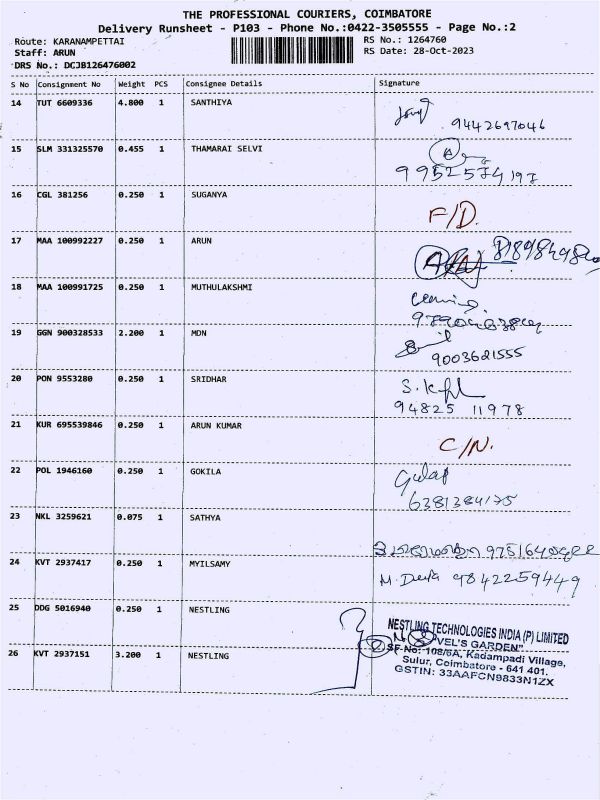 THE PROFESSIONAL COURIERS, COIMBATORE
Delivery Runsheet - P103 - Phone No.:0422-3505555 - Page No.:2
Route: KARANAMPETTAI
RS No.: 1264760
Staff: ARUN
RS Date: 28-Oct-2023
DRS No.: DCJB126476002
S No Consignment No Weight PCS Consignee Details Signature
14 TUT 6609336 4.800 1 SANTHIYA
9442697046
15 SLM 331325570 0.455 1 THAMARAI SELVI
9952574197
16 CGL 381256 0.250 1 SUGANYA
F/D.
17 MAA 100992227 0.250 1 ARUN
18 MAA 100991725 0.250 1 MUTHULAKSHMI
19 GGN 900328533 2.200 1 MDN
9003621555
20 PON 9553280 0.250 1 SRIDHAR
94825 11978
21 KUR 695539846 0.250 1 ARUN KUMAR
C/N.
22 POL 1946160 0.250 1 GOKILA
6381384175
23 NKL 3259621 0.075 1 SATHYA
24 KVT 2937417 0.250 1 MYILSAMY
M. Deepa 9842259449
25 DDG 5016940 0.250 1 NESTLING
NESTLING TECHNOLOGIES INDIA (P) LIMITED
"VEL'S GARDEN"
26 KVT 2937151 3.200 1 NESTLING
SF-No: 108/5A, Kadampadi Village,
Sulur, Coimbatore - 641 401.
GSTIN: 33AAFCN9833N1ZX